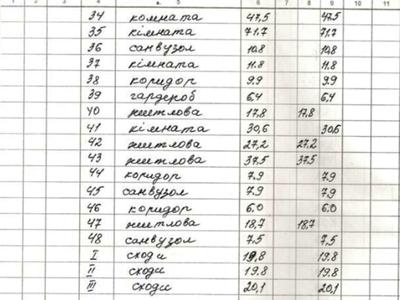 4 5 6 7 8 9 10 11
34 комната 47,5 47,5
35 кімната 71,7 71,7
36 санвузол 10,8 10,8
37 кімната 11.8 11.8
38 коридор 9.9 9.9
39 гардероб 6,4 6,4
40 житлова 17,8 17,8
41 кімната 30,6 30,6
42 житлова 27,2 27,2
43 житлова 37,5 37,5
44 коридор 7.9 7,9
45 санвузол 7.9 7,9
46 коридор 6,0 6,0
47 житлова 18,7 18,7
48 санвузол 7.5 7,5
I сходи 19,8 19.8
II сходи 19.8 19.8
III сходи 20,1 20,1